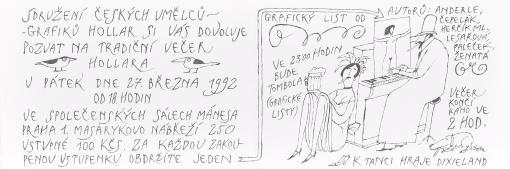 SDRUŽENÍ ČESKÝCH UMĚLCŮ-
-GRAFIKŮ HOLLAR SI VÁS DOVOLUJE
POZVAT NA TRADIČNÍ VEČER
HOLLARA
V PÁTEK DNE 27. BŘEZNA 1992
OD 18 HODIN
VE SPOLEČENSKÝCH SÁLECH MÁNESA
PRAHA 1. MASARYKOVO NÁBŘEŽÍ 250
VSTUPNÉ 100 KČS. ZA KAŽDOU ZAKOU-
PENOU VSTUPENKU OBDRŽÍTE JEDEN
GRAFICKÝ LIST OD
AUTORŮ: ANDERLE,
ČEPELÁK,
HERČÍK ML.
LESAŘOVÁ,
PALEČEK,
ŽENATÁ
VE 23.00 HODIN
BUDE
TOMBOLA
(GRAFICKÉ
LISTY)
VEČER
KONČÍ
RÁNO VE
2 HOD.
K TANCI HRAJE DIXIELAND